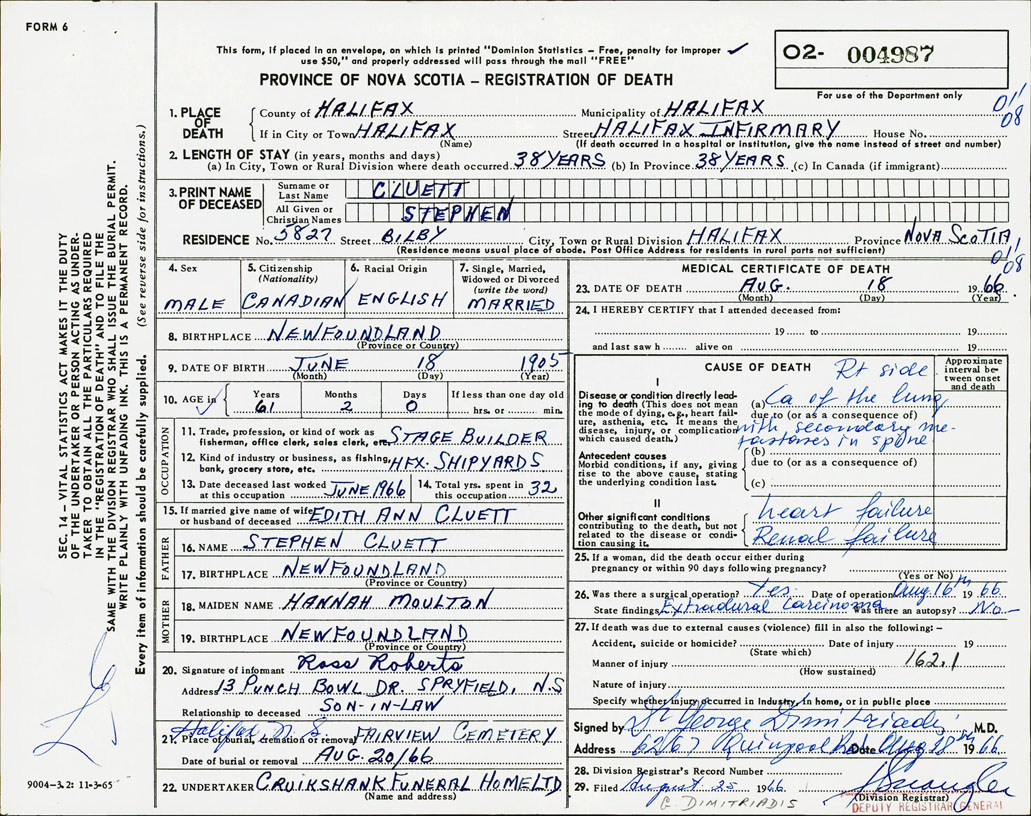 FORM 6
This form, if placed in an envelope, on which is printed "Dominion Statistics – Free, penalty for improper
use $50," and properly addressed will pass through the mail "FREE"
O2- 004987
For use of the Department only
PROVINCE OF NOVA SCOTIA – REGISTRATION OF DEATH
011
08
1. PLACE OF DEATH
County of HALIFAX Municipality of HALIFAX
If in City or Town HALIFAX Street HALIFAX INFIRMARY House No.
(Name) (If death occurred in a hospital or institution, give the name instead of street and number)
2. LENGTH OF STAY (in years, months and days)
(a) In City, Town or Rural Division where death occurred 38 YEARS (b) In Province 38 YEARS (c) In Canada (if immigrant)
3. PRINT NAME OF DECEASED
Surname or Last Name CLUETT
All Given or Christian Names STEPHEN
RESIDENCE No. 5827 Street BILBY City, Town or Rural Division HALIFAX Province NOVA SCOTIA
(Residence means usual place of abode. Post Office Address for residents in rural parts not sufficient)
011
08
4. Sex MALE
5. Citizenship (Nationality) CANADIAN
6. Racial Origin ENGLISH
7. Single, Married, Widowed or Divorced (write the word) MARRIED
8. BIRTHPLACE NEWFOUNDLAND
(Province or Country)
9. DATE OF BIRTH JUNE 18 1905
(Month) (Day) (Year)
10. AGE in Years 61 Months 2 Days 0 If less than one day old hrs. or min.
OCCUPATION
11. Trade, profession, or kind of work as fisherman, office clerk, sales clerk, etc. STAGE BUILDER
12. Kind of industry or business, as fishing, bank, grocery store, etc. HFX. SHIPYARDS
13. Date deceased last worked at this occupation JUNE 1966
14. Total yrs. spent in this occupation 32
15. If married give name of wife or husband of deceased EDITH ANN CLUETT
FATHER
16. NAME STEPHEN CLUETT
17. BIRTHPLACE NEWFOUNDLAND
(Province or Country)
MOTHER
18. MAIDEN NAME HANNAH MOULTON
19. BIRTHPLACE NEWFOUNDLAND
(Province or Country)
20. Signature of informant Ross Roberts
Address 13 PUNCH BOWL DR. SPRYFIELD, N.S
Relationship to deceased SON-IN-LAW
Halifax N.S.
21. Place of burial, cremation or removal FAIRVIEW CEMETERY
Date of burial or removal AUG. 20/66
22. UNDERTAKER CRUIKSHANK FUNERAL HOME LTD
(Name and address)
MEDICAL CERTIFICATE OF DEATH
23. DATE OF DEATH AUG. 18 1966
(Month) (Day) (Year)
24. I HEREBY CERTIFY that I attended deceased from:
19 to 19
and last saw h alive on 19
CAUSE OF DEATH Rt side
Approximate interval between onset and death
I
Disease or condition directly leading to death (This does not mean the mode of dying, e.g., heart failure, asthenia, etc. It means the disease, injury, or complication which caused death.)
(a) Ca of the lung
due to (or as a consequence of)
with secondary me-
tastases in spine
Antecedent causes
Morbid conditions, if any, giving rise to the above cause, stating the underlying condition last.
(b)
due to (or as a consequence of)
(c)
II
Other significant conditions contributing to the death, but not related to the disease or condition causing it.
heart failure
Renal failure
25. If a woman, did the death occur either during
pregnancy or within 90 days following pregnancy?
(Yes or No)
26. Was there a surgical operation? Yes Date of operation Aug 16th 1966
State findings Extradural Carcinoma Was there an autopsy? No-
27. If death was due to external causes (violence) fill in also the following: –
Accident, suicide or homicide? Date of injury 19
(State which)
Manner of injury 162.1
(How sustained)
Nature of injury
Specify whether injury occurred in Industry, in home, or in public place
Signed by Dr George Dimitriadis M.D.
Address 6267 Quinpool Rd Date Aug 18th 1966
28. Division Registrar's Record Number
29. Filed August 25 1966
(Division Registrar)
G. DIMITRIADIS
DEPUTY REGISTRAR GENERAL
SEC. 14 – VITAL STATISTICS ACT MAKES IT THE DUTY
OF THE UNDERTAKER OR PERSON ACTING AS UNDER-
TAKER TO OBTAIN ALL THE PARTICULARS REQUIRED
IN THE "REGISTRATION OF DEATH" AND TO FILE THE
SAME WITH THE DIVISION REGISTRAR WHO SHALL ISSUE THE BURIAL PERMIT.
WRITE PLAINLY WITH UNFADING INK. THIS IS A PERMANENT RECORD.
Every item of information should be carefully supplied. (See reverse side for instructions.)
9004-3.2: 11-3-65